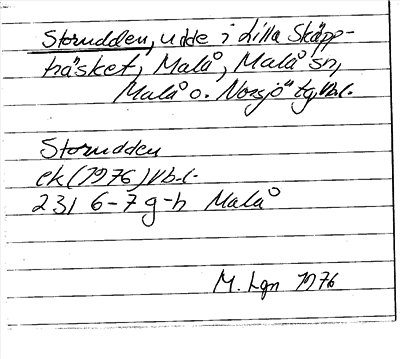 Storudden, udde i Lilla Skäpp-
träsket, Malå, Malå sn,
Malå o. Norsjö tg, Vbl.
Storudden
ek (1976) Vb.l.
23I 6-7 g-h Malå
M. Lgn 1976